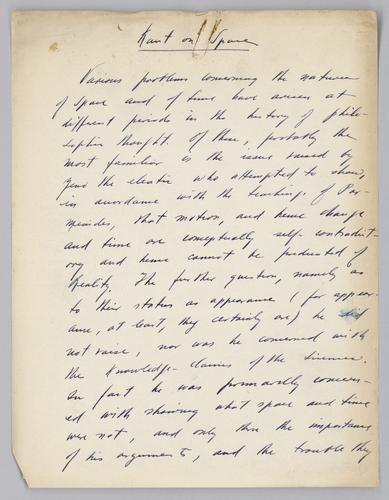 Kant on Space
Various problems concerning the nature
of space and of time have arisen at
different periods in the history of philo-
sophic thought. Of these, probably the
most familiar is the issue raised by
Zeno the eleatic who attempted to show,
in accordance with the teachings of Par-
menides, that motion, and hence change
and time are conceptually self-contradict-
ory and hence cannot be predicated of
Reality. The further question, namely as
to their status as appearance (for appear-
ance, at least, they certainly are) he did
not raise, nor was he concerned with
the knowledge-claims of the sciences.
In fact he was primarily concern-
ed with showing what space and time
were not, and only thru the importance
of his arguments, and the trouble they